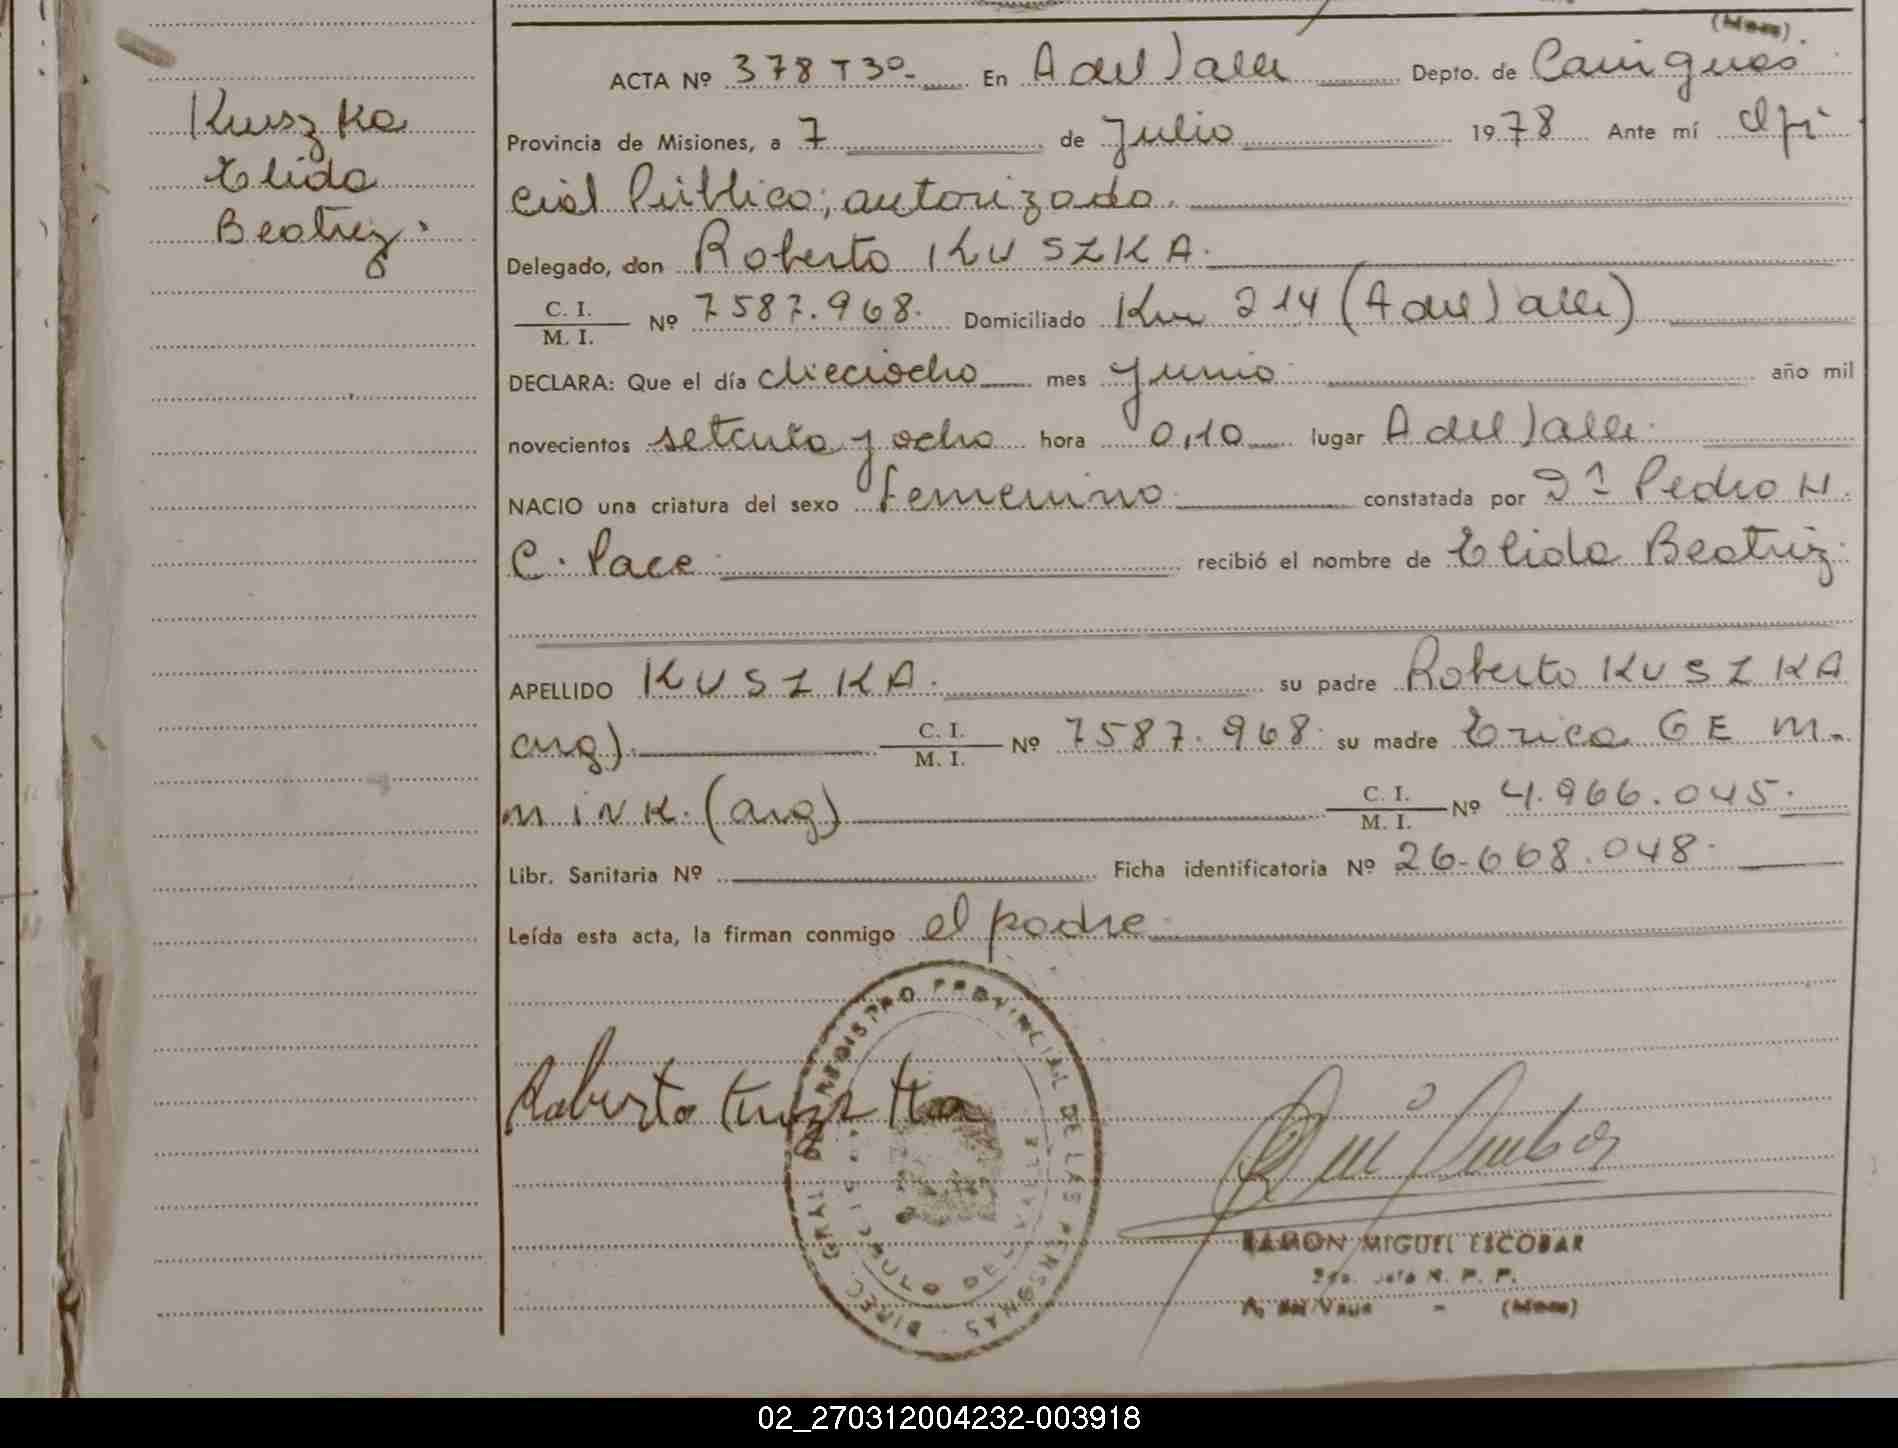 (Mnes).
ACTA Nº 378 T3º. En A del Valle Depto. de Cainguas
Kuszka
Provincia de Misiones, a 7 de Julio 1978 Ante mí Ofi
Elida
cial Público; autorizado.
Beatriz.
Delegado, don Roberto KUSZKA.
C. I.
M. I.
Nº 7587.968. Domiciliado Km 214 (A del Valle)
DECLARA: Que el día dieciocho mes Junio año mil
novecientos setenta y ocho hora 0,10 lugar A del Valle.
NACIO una criatura del sexo femenino. constatada por Dr Pedro H.
C. Pace recibió el nombre de Elida Beatriz.
APELLIDO KUSZKA. su padre Roberto KUSZKA
arg). C. I.
M. I.
Nº 7587.968. su madre Erica GEM-
MINK. (arg) C. I.
M. I.
Nº 4.966.045.
Libr. Sanitaria Nº Ficha identificatoria Nº 26.668.048.
Leída esta acta, la firman conmigo el padre.
DIREC. GRAL. DE REGISTRO PROVINCIAL DE LAS PERSONAS
Roberto Kuszka
RAMON MIGUEL ESCOBAR
Jefe R. P. P.
A. del Valle - (Mnes)
02_270312004232-003918